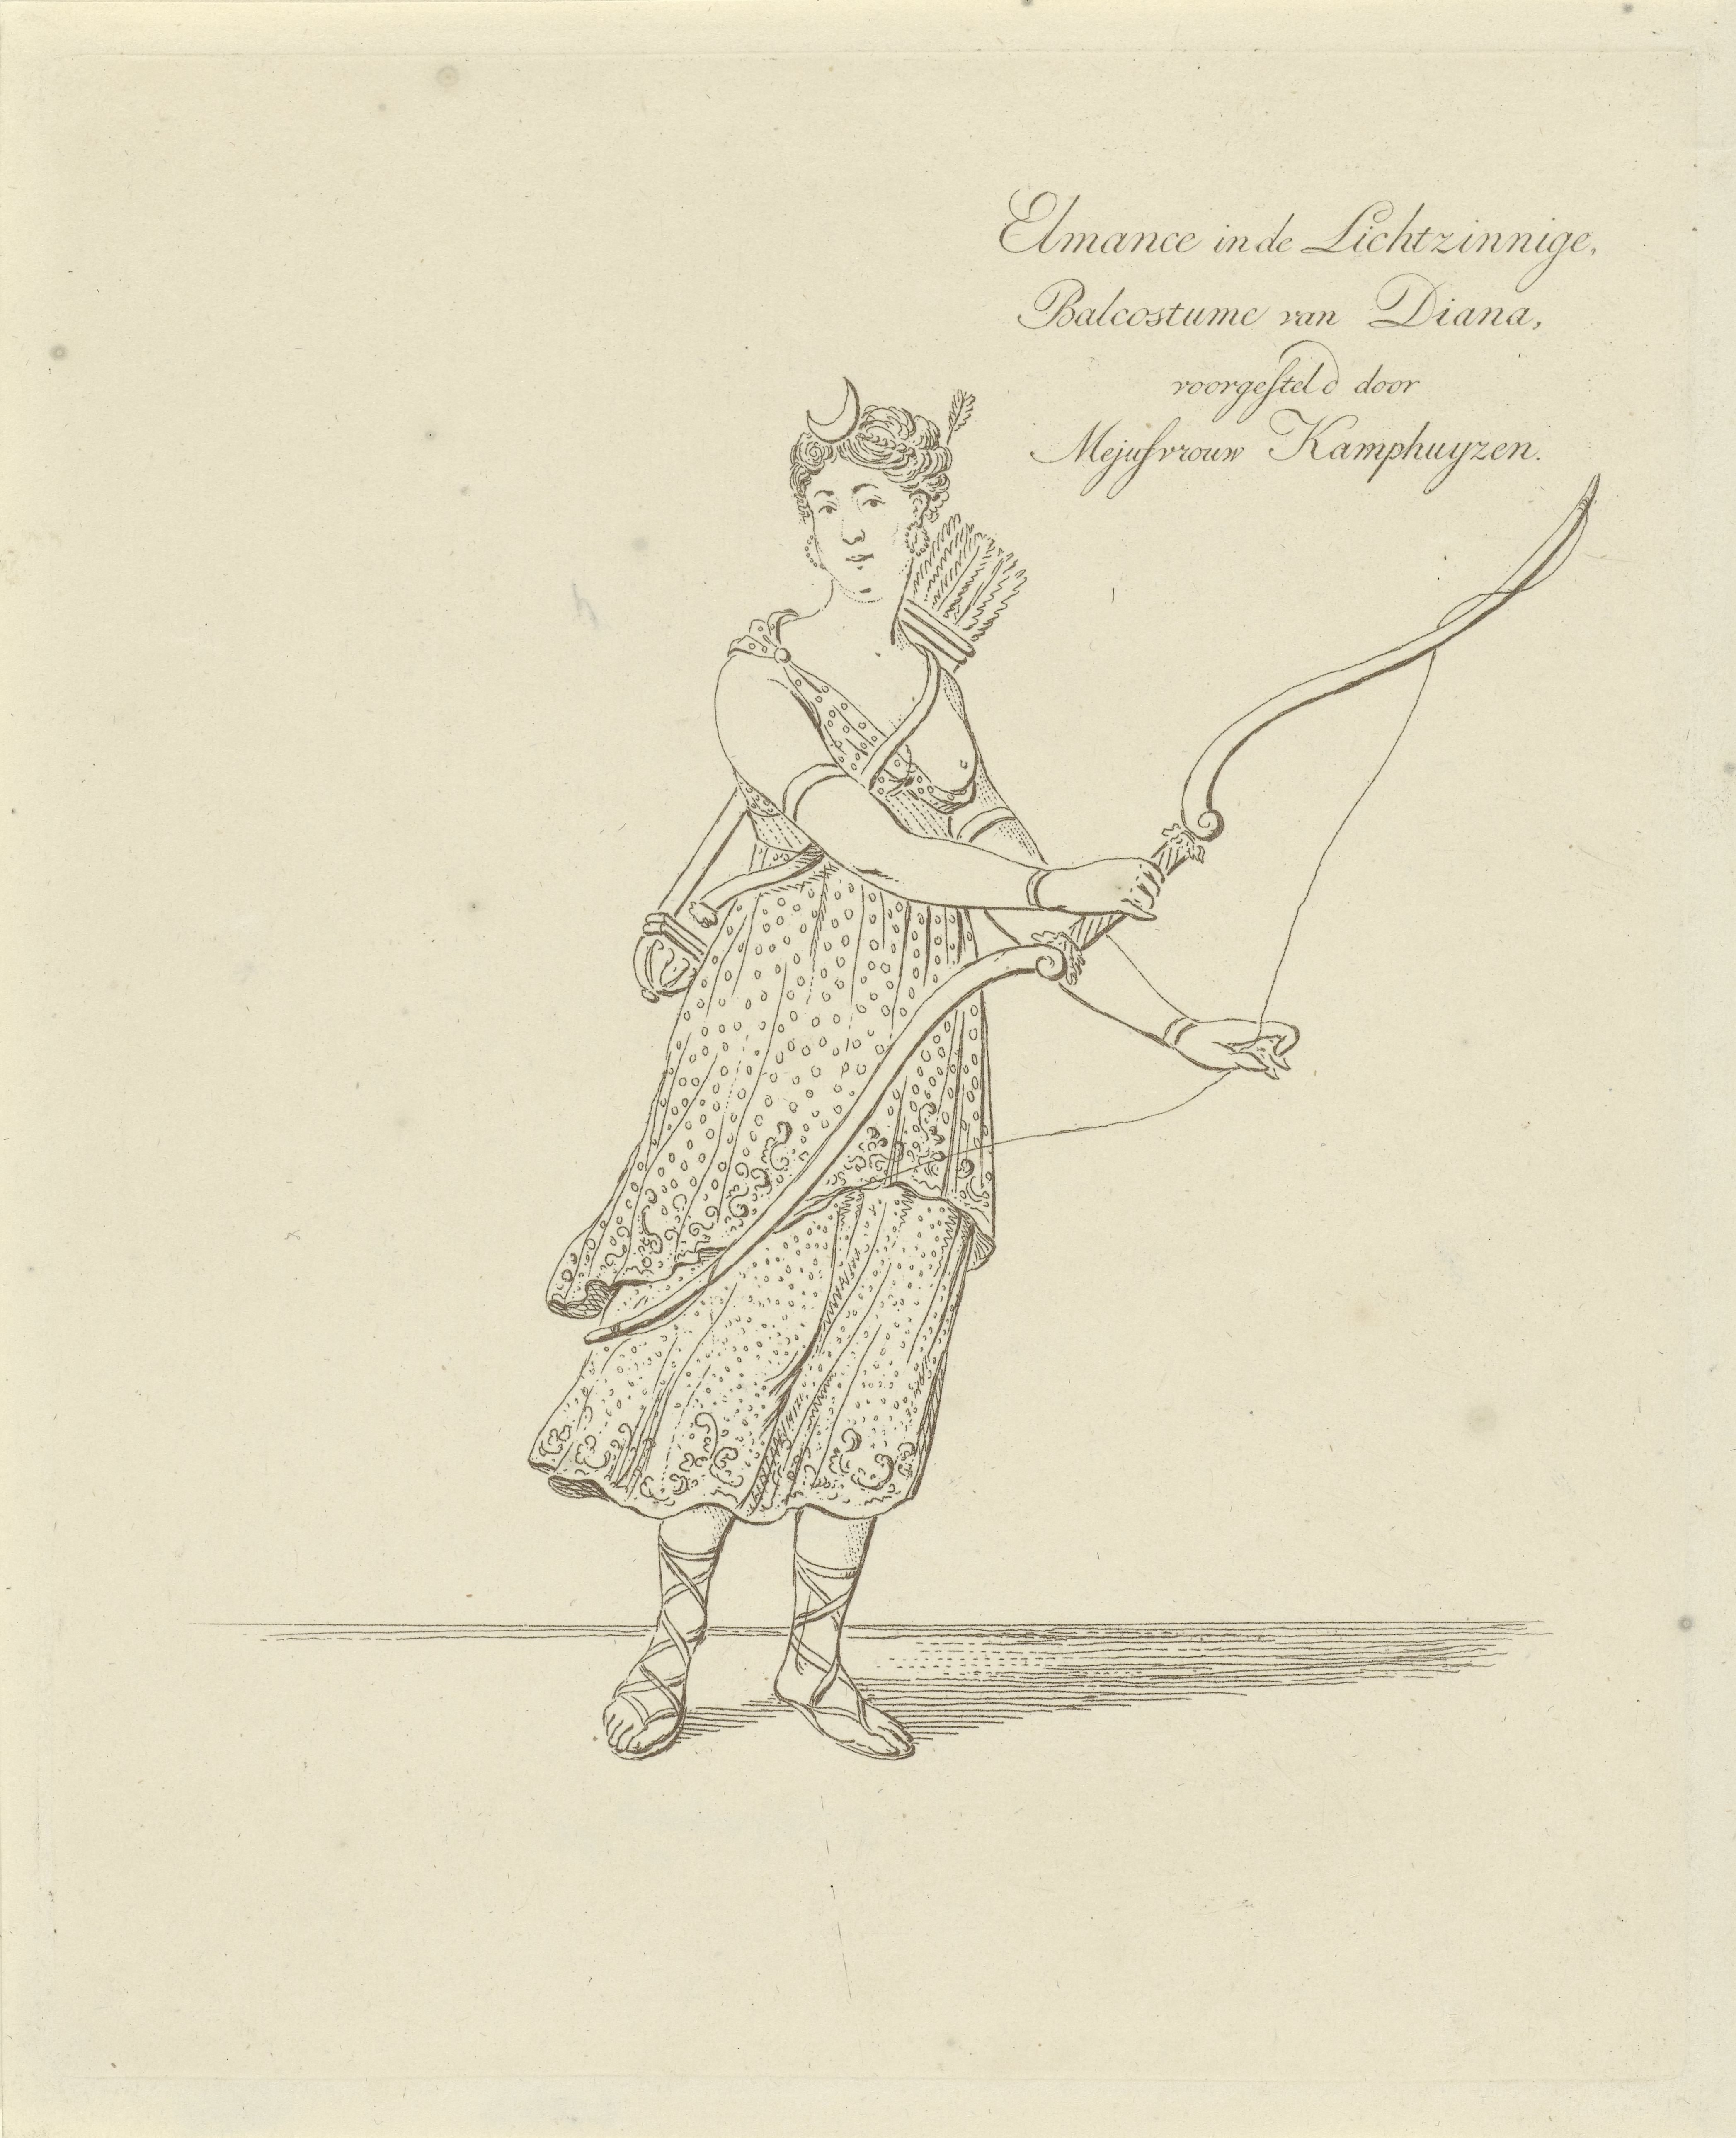 Elmance in de Lichtzinnige,
Balcostume van Diana,
voorgesteld door
Mejufvrouw Kamphuyzen.